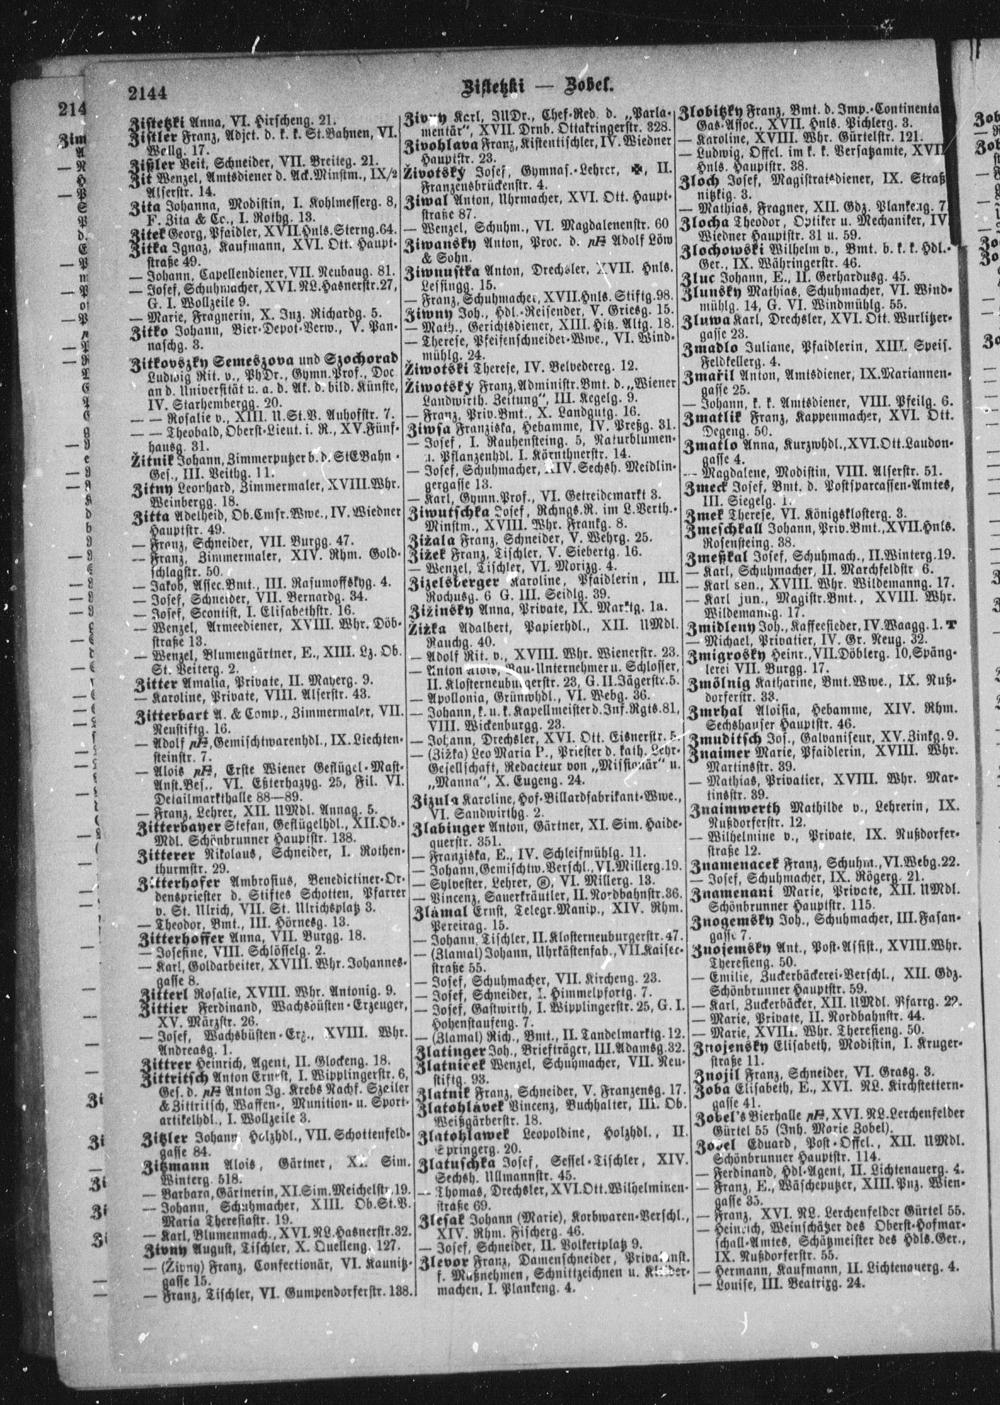 2144
Zistetzki — Zobel.
Zistetzki Anna, VI. Hirscheng. 21.
Zistler Franz, Adjct. d. k. k. St.Bahnen, VI.
Wellg. 17.
Zißler Veit, Schneider, VII. Breiteg. 21.
Zit Wenzel, Amtsdiener d. Ack.Minstm., IX/2
Alserstr. 14.
Zita Johanna, Modistin, I. Kohlmesserg. 8,
F. Zita & Co., I. Rothg. 13.
Zitek Georg, Pfaidler, XVII.Hnls.Sterng.64.
Zitka Ignaz, Kaufmann, XVI. Ott. Haupt-
straße 49.
— Johann, Capellendiener, VII. Neubaug. 81.
— Josef, Schuhmacher, XVI. NL.Hasnerstr.27,
G. I. Wollzeile 9.
— Marie, Fragnerin, X. Inz. Richardg. 5.
Zitko Johann, Bier-Depot-Verw., V. Pan-
naschg. 3.
Zitkovszky Semeszova und Szochorad
Ludwig Rit. v., PhDr., Gymn.Prof., Doc
an d. Universität u. a. d. Ak. d. bild. Künste,
IV. Starhembergg. 20.
— — Rosalie v., XIII. U.St.V. Auhofstr. 7.
— — Theobald, Oberst-Lieut. i. R., XV.Fünf-
hausg. 31.
Žitnik Johann, Zimmerputzer b. d. StEBahn-
Ges., III. Veithg. 11.
Zitny Leonhard, Zimmermaler, XVIII.Whr.
Weinbergg. 18.
Zitta Adelheid, Ob.Cmsr.Wwe., IV. Wiedner
Hauptstr. 49.
— Franz, Schneider, VII. Burgg. 47.
— Franz, Zimmermaler, XIV. Rhm. Gold-
schlagstr. 50.
— Jakob, Assec.Bmt., III. Rasumoffskyg. 4.
— Josef, Schneider, VII. Bernardg. 34.
— Josef, Scontist, I. Elisabethstr. 16.
— Wenzel, Armeediener, XVIII. Whr. Döb-
straße 13.
— Wenzel, Blumengärtner, E., XIII. Lz. Ob.
St. Veiterg. 2.
Zitter Amalia, Private, II. Mayerg. 9.
— Karoline, Private, VIII. Alserstr. 43.
Zitterbart A. & Comp., Zimmermaler, VII.
Neustiftg. 16.
— Adolf, Gemischtwarenhdl., IX. Liechten-
steinstr. 7.
— Alois, Erste Wiener Geflügel-Mast-
Anst.Bes., VI. Esterhazyg. 25, Fil. VI.
Detailmarkthalle 88—89.
— Franz, Lehrer, XII. UMdl. Annag. 5.
Zitterbayer Stefan, Geflügelhdl., XII.Ob.-
Mdl. Schönbrunner Hauptstr. 138.
Zitterer Nikolaus, Schneider, I. Rothen-
thurmstr. 29.
Zitterhofer Ambrosius, Benedictiner-Or-
denspriester d. Stiftes Schotten, Pfarrer
v. St. Ulrich, VII. St. Ulrichsplatz 3.
— Theodor, Bmt., III. Hörnesg. 13.
Zitterhoffer Anna, VII. Burgg. 18.
— Josefine, VIII. Schlösselg. 2.
— Karl, Goldarbeiter, XVIII. Whr. Johannes-
gasse 8.
Zitterl Rosalie, XVIII. Whr. Antonig. 9.
Zittier Ferdinand, Wachsbüsten-Erzeuger,
XV. Märzstr. 26.
— Josef, Wachsbüsten-Erz., XVIII. Whr.
Andreasg. 1.
Zittrer Heinrich, Agent, II. Glockeng. 18.
Zittritsch Anton Ernst, I. Wipplingerstr. 6,
Ges. d. Anton Ig. Krebs Nachf. Szeiler
& Zittritsch, Waffen-, Munition- u. Sport-
artikelhdl., I. Wollzeile 3.
Zitzler Johann, Holzhdl., VII. Schottenfeld-
gasse 84.
Zitzmann Alois, Gärtner, XI. Sim.
Winterg. 518.
— Barbara, Gärtnerin, XI.Sim. Meichelstr. 19.
— Johann, Schuhmacher, XIII. Ob.St.V.
Maria Theresiastr. 19.
— Karl, Blumenmach., XVI. NL.Hasnerstr.32.
Zivny August, Tischler, X. Quelleng. 127.
— (Živny) Franz, Confectionär, VI. Kaunitz-
gasse 15.
— Franz, Tischler, VI. Gumpendorferstr. 138.
Zivny Karl, JUDr., Chef-Red. d. „Parla-
mentär", XVII. Drnb. Ottakringerstr. 328.
Zivohlava Franz, Kistentischler, IV. Wiedner
Hauptstr. 23.
Životský Josef, Gymnas.-Lehrer, ✠, II.
Franzensbrückenstr. 4.
Ziwal Anton, Uhrmacher, XVI. Ott. Haupt-
straße 87.
— Wenzel, Schuhm., VI. Magdalenenstr. 60
Ziwansky Anton, Proc. d. Adolf Löw
& Sohn.
Ziwnustka Anton, Drechsler, XVII. Hnls.
Lessingg. 15.
— Franz, Schuhmacher, XVII.Hnls. Stiftg.98.
Ziwny Joh., Hdl.-Reisender, V. Griesg. 15.
— Math., Gerichtsdiener, XIII. Hitz. Altg. 18.
— Therese, Pfeifenschneider-Wwe., VI. Wind-
mühlg. 24.
Životski Therese, IV. Belvedereg. 12.
Životský Franz, Administr.Bmt. d. „Wiener
Landwirth. Zeitung", III. Kegelg. 9.
— Franz, Priv.Bmt., X. Landgutg. 16.
Ziwsa Franziska, Hebamme, IV. Preßg. 31.
— Josef, I. Rauhensteing. 5, Naturblumen-
u. Pflanzenhdl. I. Kärnthnerstr. 14.
— Josef, Schuhmacher, XIV. Sechsh. Meidlin-
gergasse 13.
— Karl, Gymn.Prof., VI. Getreidemarkt 3.
Ziwutschka Josef, Rchngs.R. im L.Verth.-
Minstm., XVIII. Whr. Frankg. 8.
Zižala Franz, Schneider, V. Wehrg. 25.
Zižek Franz, Tischler, V. Siebertg. 16.
— Wenzel, Tischler, VI. Morizg. 4.
Zizelsberger Karoline, Pfaidlerin, III.
Rochusg. 6 G. III. Seidlg. 39.
Zižinsky Anna, Private, IX. Marktg. 1a.
Žižka Adalbert, Papierhdl., XII. UMdl.
Rauchg. 40.
— Adolf Rit. v., XVIII. Whr. Wienerstr. 23.
— Anton Alois, Bau-Unternehmer u. Schlosser,
II. Klosterneuburgerstr. 23, G. II.Jägerstr.5.
— Apollonia, Grünwhdl., VI. Webg. 36.
— Johann, k. u. k. Kapellmeister d. Inf. Rgts.81,
VIII. Wickenburgg. 23.
— Johann, Drechsler, XVI. Ott. Eisnerstr. 5.
— (Žižka) Leo Maria P., Priester d. kath. Lehr-
Gesellschaft, Redacteur von „Missionär" u.
„Manna", X. Eugeng. 24.
Zizula Karoline, Hof-Billardfabrikant-Wwe.,
VI. Sandwirthg. 2.
Zlabinger Anton, Gärtner, XI. Sim. Haide-
querstr. 351.
— Franziska, E., IV. Schleifmühlg. 11.
— Johann, Gemischtw. Verschl., VI.Millerg.19.
— Sylvester, Lehrer, VI. Millerg. 13.
— Vincenz, Sauerkräutler, II. Nordbahnstr.36.
Zlámal Ernst, Telegr.Manip., XIV. Rhm.
Pereirag. 15.
— Johann, Tischler, II. Klosterneuburgerstr. 47.
— (Zlamal) Johann, Uhrkästenfab., VII.Kaiser-
straße 55.
— Josef, Schuhmacher, VII. Kircheng. 23.
— Josef, Schneider, I. Himmelpfortg. 7.
— Josef, Gastwirth, I. Wipplingerstr. 25, G. I.
Hohenstaufeng. 7.
— (Zlamal) Rich., Bmt., II. Tandelmarktg. 12.
Zlatinger Joh., Briefträger, III. Adamsg.32.
Zlatnicek Wenzel, Schuhmacher, VII. Neu-
stiftg. 93.
Zlatnik Franz, Schneider, V. Franzensg. 17.
Zlatohlávek Vincenz, Buchhalter, III. Ob.
Weißgärberstr. 18.
Zlatohlawek Leopoldine, Holzhdl., II.
Springerg. 20.
Zlatuschka Josef, Sessel-Tischler, XIV.
Sechsh. Ullmannstr. 45.
— Thomas, Drechsler, XVI.Ott.Wilhelminen-
straße 69.
Zlesak Johann (Marie), Korbwaren-Verschl.,
XIV. Rhm. Fischerg. 46.
— Josef, Schneider, II. Volkertplatz 9.
Zlevor Franz, Damenschneider, Privatanst.
f. Maßnehmen, Schnittzeichnen u. Kleider-
machen, I. Plankeng. 4.
Zlobitzky Franz, Bmt. d. Imp.-Continental
Gas-Assoc., XVII. Hnls. Pichlerg. 3.
— Karoline, XVIII. Whr. Gürtelstr. 121.
— Ludwig, Offcl. im k. k. Versatzamte, XVII
Hnls. Hauptstr. 38.
Zloch Josef, Magistratsdiener, IX. Straß
nitzkig. 3.
— Mathias, Fragner, XII. Gdz. Plankeng. 7
Zlocha Theodor, Optiker u. Mechaniker, IV
Wiedner Hauptstr. 31 u. 59.
Zlochowski Wilhelm v., Bmt. b. k. k. Hdl.-
Ger., IX. Währingerstr. 46.
Zluc Johann, E., II. Gerhardusg. 45.
Zlunsky Mathias, Schuhmacher, VI. Wind-
mühlg. 14, G. VI. Windmühlg. 55.
Zluwa Karl, Drechsler, XVI. Ott. Wurlitzer-
gasse 23.
Zmadlo Juliane, Pfaidlerin, XIII. Speis.
Feldkellerg. 4.
Zmaril Anton, Amtsdiener, IX.Mariannen-
gasse 25.
— Johann, k. k. Amtsdiener, VIII. Pfeilg. 6.
Zmatlik Franz, Kappenmacher, XVI. Ott.
Degeng. 50.
Zmatlo Anna, Kurzwhdl., XVI.Ott.Laudon-
gasse 4.
— Magdalene, Modistin, VIII. Alserstr. 51.
Zmeck Josef, Bmt. d. Postsparcassen-Amtes,
III. Siegelg. 1.
Zmek Therese, VI. Königsklosterg. 3.
Zmeschkall Johann, Priv.Bmt., XVII.Hnls.
Rosensteing. 38.
Zmeßkal Josef, Schuhmach., II. Winterg.19.
— Karl, Schuhmacher, II. Marchfeldstr. 6.
— Karl sen., XVIII. Whr. Wildemanng. 17.
— Karl jun., Magistr.Bmt., XVIII. Whr.
Wildemanng. 17.
Zmidleny Joh., Kaffeesieder, IV.Waagg. 1. T
— Michael, Privatier, IV. Gr. Neug. 32.
Zmigrosky Heinr., VII.Döblerg. 10, Späng-
lerei VII. Burgg. 17.
Zmölnig Katharine, Bmt.Wwe., IX. Nuß-
dorferstr. 33.
Zmrhal Aloisia, Hebamme, XIV. Rhm.
Sechshauser Hauptstr. 46.
Zmuditsch Jos., Galvaniseur, XV.Zinkg. 9.
Znaimer Marie, Pfaidlerin, XVIII. Whr.
Martinsstr. 39.
— Mathias, Privatier, XVIII. Whr. Mar-
tinsstr. 39.
Znaimwerth Mathilde v., Lehrerin, IX.
Nußdorferstr. 12.
— Wilhelmine v., Private, IX. Nußdorfer-
straße 12.
Znamenacek Franz, Schuhm., VI.Webg.22.
— Josef, Schuhmacher, IX. Rögerg. 21.
Znamenani Marie, Private, XII. UMdl.
Schönbrunner Hauptstr. 115.
Znogemsky Joh., Schuhmacher, III. Fasan-
gasse 7.
Znojemsky Ant., Post-Assist., XVIII.Whr.
Theresieng. 50.
— Emilie, Zuckerbäckerei-Verschl., XII. Gdz.
Schönbrunner Hauptstr. 59.
— Karl, Zuckerbäcker, XII. UMdl. Pfarrg. 22.
— Marie, Private, II. Nordbahnstr. 44.
— Marie, XVIII. Whr. Theresieng. 50.
Znojensky Elisabeth, Modistin, I. Kruger-
straße 11.
Znojil Franz, Schneider, VI. Grasg. 3.
Zoba Elisabeth, E., XVI. NL. Kirchstettern-
gasse 41.
Zobel's Bierhalle, XVI. NL.Lerchenfelder
Gürtel 55 (Inh. Marie Zobel).
Zobel Eduard, Post-Offcl., XII. UMdl.
Schönbrunner Hauptstr. 114.
— Ferdinand, Hdl-Agent, II. Lichtenauerg. 4.
— Franz, E., Wäscheputzer, XIII. Pnz. Wien-
gasse 35.
— Franz, XVI. NL. Lerchenfelder Gürtel 55.
— Heinrich, Weinschätzer des Oberst-Hofmar-
schall-Amtes, Schätzmeister des Hdls.Ger.,
IX. Nußdorferstr. 55.
— Hermann, Kaufmann, II. Lichtenauerg. 4.
— Louise, III. Beatrixg. 24.